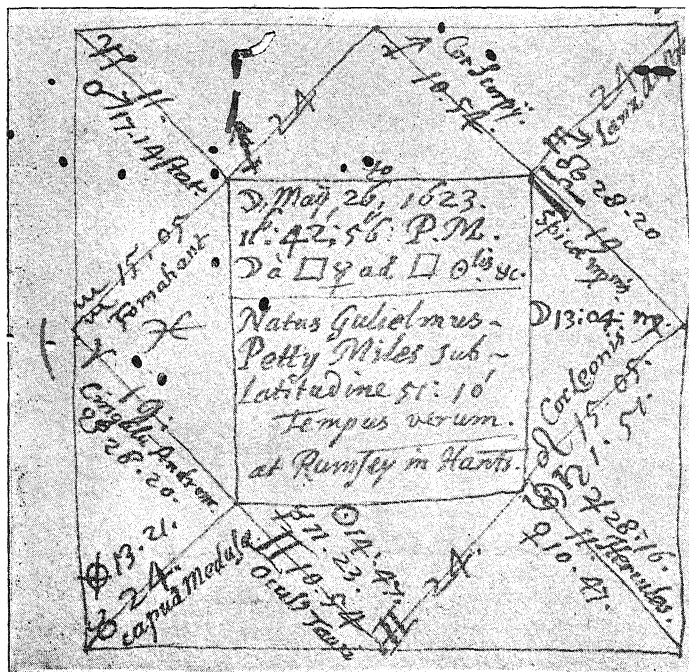 ☽ May, 26, 1623.
11h: 42': 56": P.M.
☽ à □ ☿ ad □ ☉lis &c.
Natus Gulielmus
Petty Miles sub
Latitudine 51: 10'
Tempus verum.
at Rumsey in Hants.
10
♂ 17.14 stat.
11.
24
Cor Scorpij.
10.54.
24
28.20
Spica ♍nis
19
☽ 13:04: ♍.
Cor Leonis
♌ 15.05.
♄ 1.51.
♃ 28:16.
11. Hercules.
♀ 10.47.
24.
☉ 14.47.
☿ 11.23.
♊ 10.54
Oculus Tauri
⊕ 13.21.
♉ 24.
caput Medusæ
♈ 19.
Cingulu Androm.
28.20.
♒ 15.05
Fomahant
♓